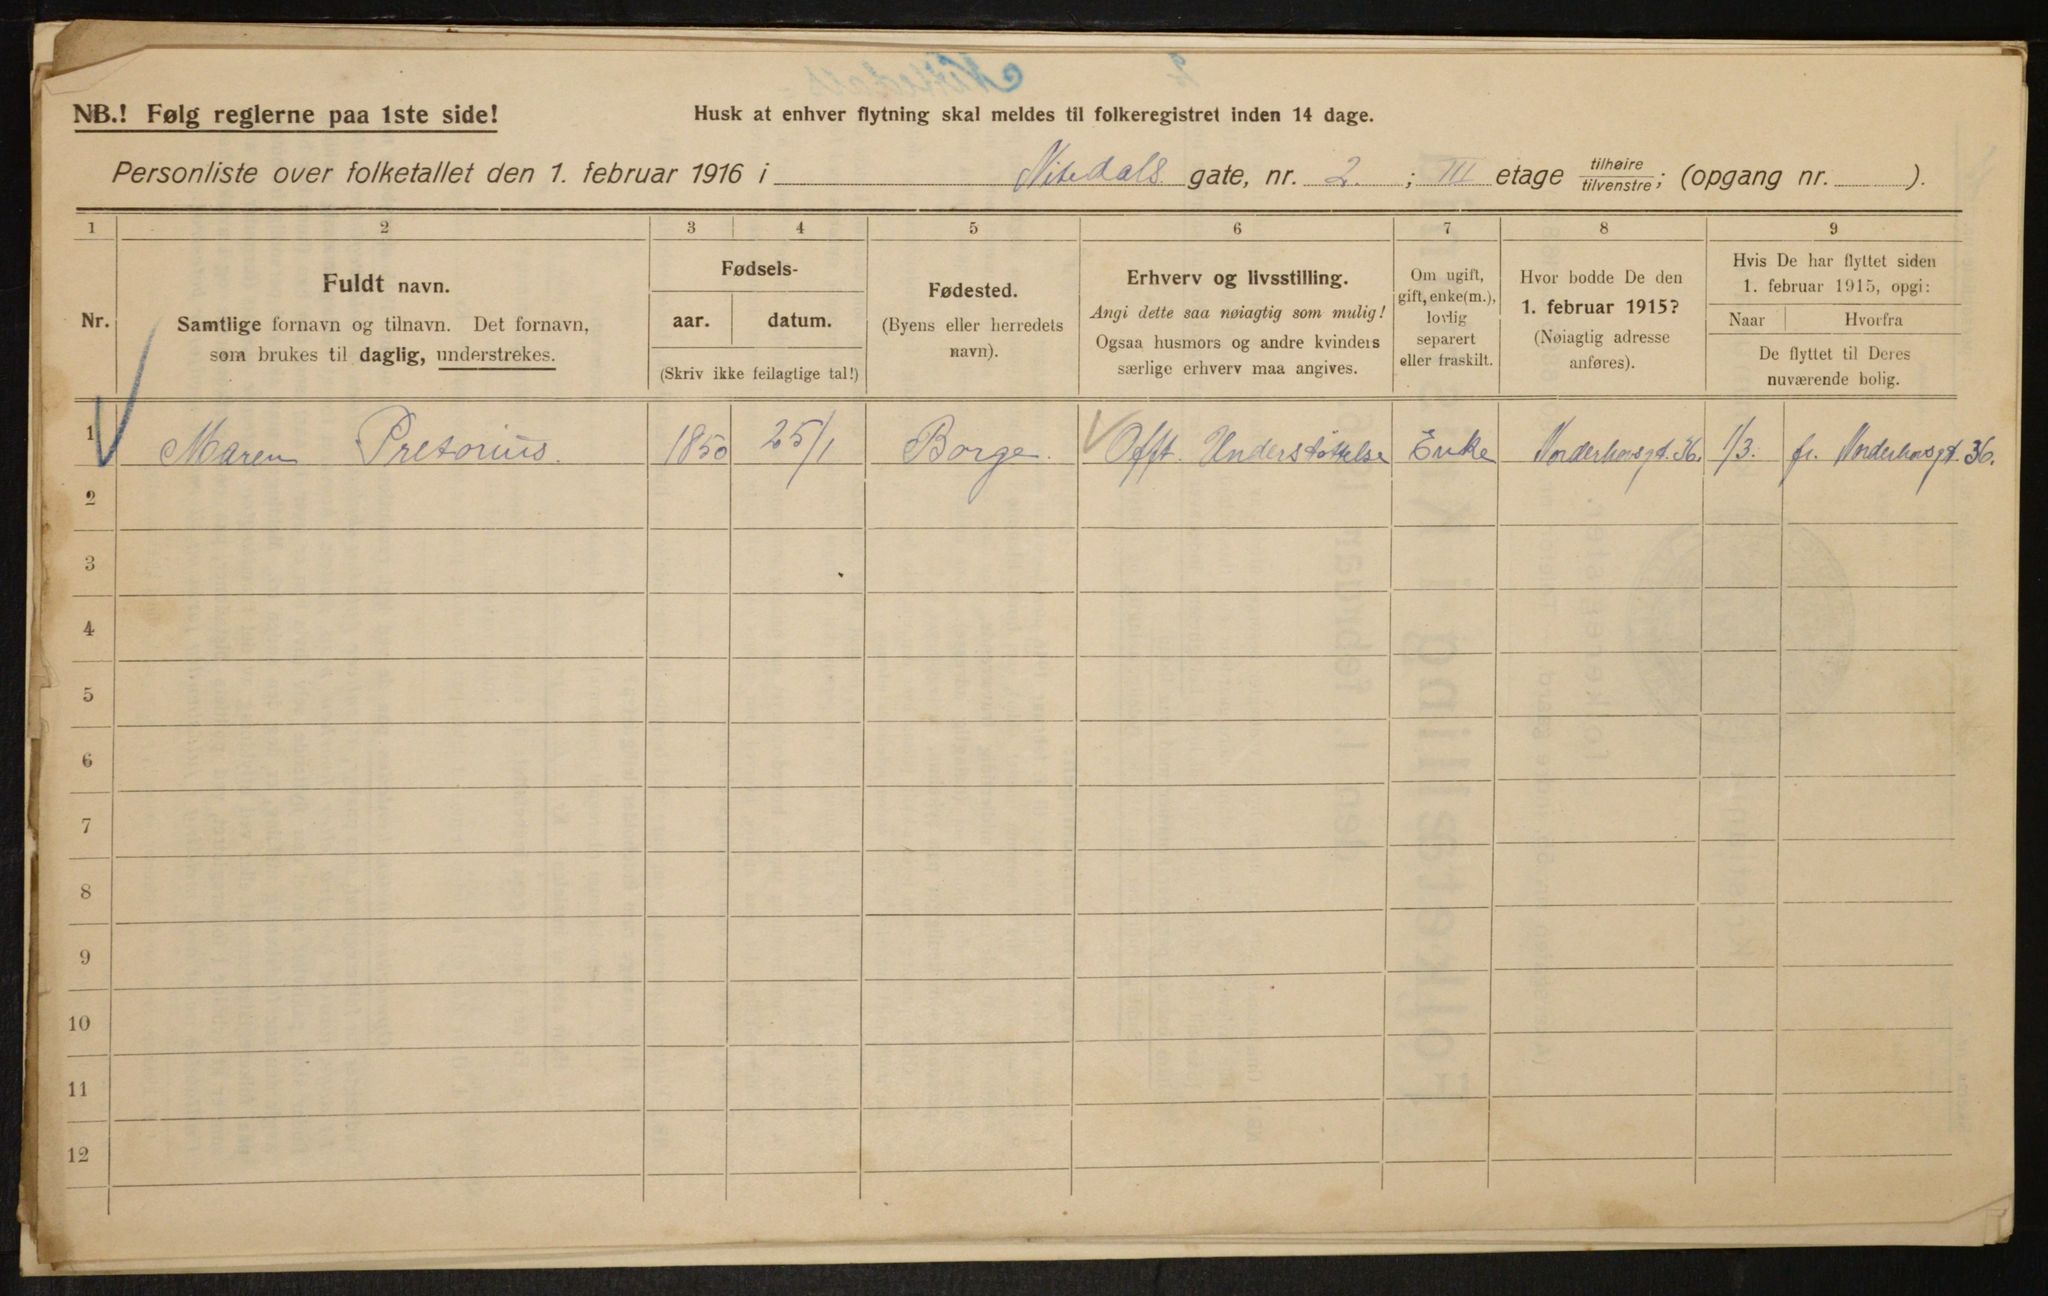 NB.! Følg reglerne paa 1ste side!
Husk at enhver flytning skal meldes til folkeregistret inden 14 dage.
Personliste over folketallet den 1. februar 1916 i Nitedals gate, nr. 2. ; III etage tilhøire/tilvenstre; (opgang nr. ).
1 2 3 4 5 6 7 8 9
Nr.
Fuldt navn.
Samtlige fornavn og tilnavn. Det fornavn,
som brukes til daglig, understrekes.
Fødsels-
aar. datum.
(Skriv ikke feilagtige tal!)
Fødested.
(Byens eller herredets
navn).
Erhverv og livsstilling.
Angi dette saa nøiagtig som mulig!
Ogsaa husmors og andre kvinders
særlige erhverv maa angives.
Om ugift,
gift, enke(m.),
lovlig
separert
eller fraskilt.
Hvor bodde De den
1. februar 1915?
(Nøiagtig adresse
anføres).
Hvis De har flyttet siden
1. februar 1915, opgi:
Naar Hvorfra
De flyttet til Deres
nuværende bolig.
1 Maren Pretorius. 1850 25/1 Borge. Offt. Understøttelse Enke Norderhovsgt. 36. 1/3. fr. Norderhovsgt. 36.
2
3
4
5
6
7
8
9
10
11
12